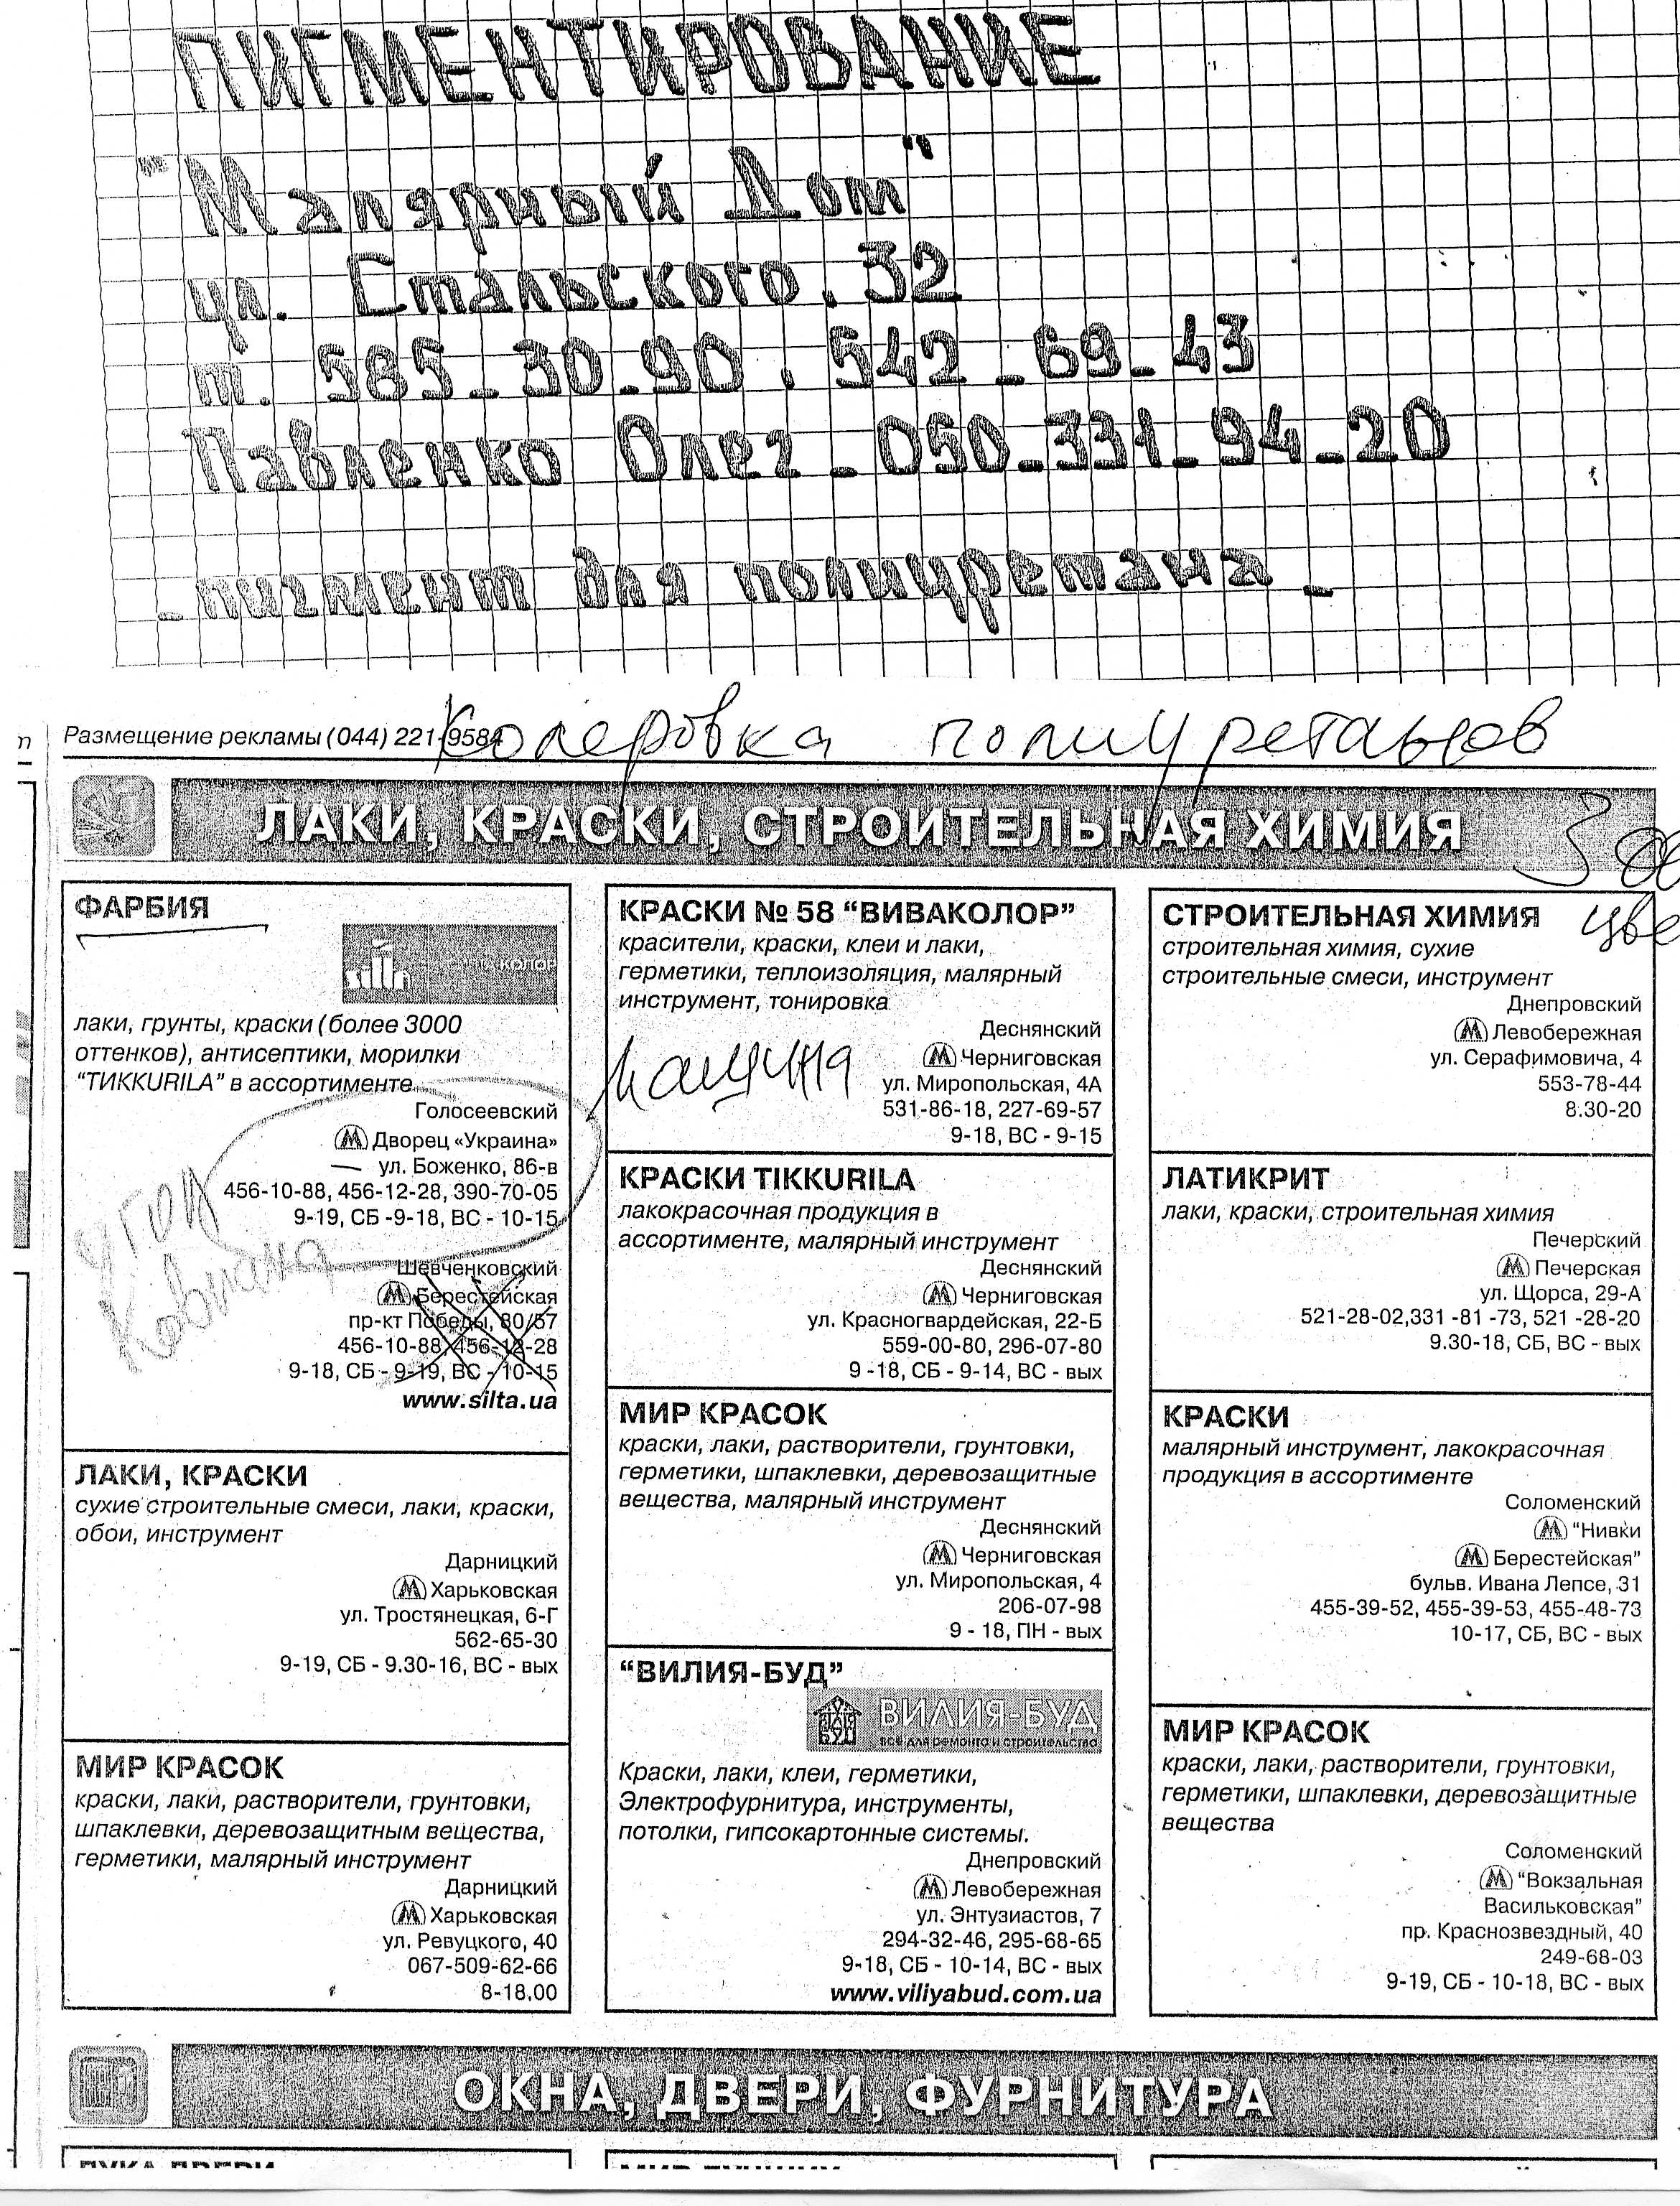 ПИГМЕНТИРОВАНИЕ
"Малярный Дом"
ул. Стальского. 32
т. 585_30_90. 542_69_43
Павленко Олег_050_331_94_20
_пигмент для полиуретана_
Размещение рекламы (044) 221-9584
Колеровка полиуретанов
ЛАКИ, КРАСКИ, СТРОИТЕЛЬНАЯ ХИМИЯ
ФАРБИЯ
silta
КОЛОР
лаки, грунты, краски (более 3000
оттенков), антисептики, морилки
"TИKKURILA" в ассортименте
Голосеевский
М Дворец «Украина»
ул. Боженко, 86-в
456-10-88, 456-12-28, 390-70-05
9-19, СБ -9-18, ВС - 10-15
угол
Шевченковский
М Берестейская
пр-кт Победы, 80/57
456-10-88, 456-12-28
9-18, СБ - 9-19, ВС - 10-15
www.silta.ua
ЛАКИ, КРАСКИ
сухие строительные смеси, лаки, краски,
обои, инструмент
Дарницкий
М Харьковская
ул. Тростянецкая, 6-Г
562-65-30
9-19, СБ - 9.30-16, ВС - вых
МИР КРАСОК
краски, лаки, растворители, грунтовки,
шпаклевки, деревозащитным вещества,
герметики, малярный инструмент
Дарницкий
М Харьковская
ул. Ревуцкого, 40
067-509-62-66
8-18.00
КРАСКИ № 58 "ВИВАКОЛОР"
красители, краски, клеи и лаки,
герметики, теплоизоляция, малярный
инструмент, тонировка
Деснянский
М Черниговская
ул. Миропольская, 4А
531-86-18, 227-69-57
9-18, ВС - 9-15
КРАСКИ TIKKURILA
лакокрасочная продукция в
ассортименте, малярный инструмент
Деснянский
М Черниговская
ул. Красногвардейская, 22-Б
559-00-80, 296-07-80
9 -18, СБ - 9-14, ВС - вых
МИР КРАСОК
краски, лаки, растворители, грунтовки,
герметики, шпаклевки, деревозащитные
вещества, малярный инструмент
Деснянский
М Черниговская
ул. Миропольская, 4
206-07-98
9 - 18, ПН - вых
"ВИЛИЯ-БУД"
ВИЛИЯ-БУД
все для ремонта и строительства
Краски, лаки, клеи, герметики,
Электрофурнитура, инструменты,
потолки, гипсокартонные системы.
Днепровский
М Левобережная
ул. Энтузиастов, 7
294-32-46, 295-68-65
9-18, СБ - 10-14, ВС - вых
www.viliyabud.com.ua
СТРОИТЕЛЬНАЯ ХИМИЯ
цве
строительная химия, сухие
строительные смеси, инструмент
Днепровский
М Левобережная
ул. Серафимовича, 4
553-78-44
8.30-20
ЛАТИКРИТ
лаки, краски, строительная химия
Печерский
М Печерская
ул. Щорса, 29-А
521-28-02,331 -81 -73, 521 -28-20
9.30-18, СБ, ВС - вых
КРАСКИ
малярный инструмент, лакокрасочная
продукция в ассортименте
Соломенский
М "Нивки
М Берестейская"
бульв. Ивана Лепсе, 31
455-39-52, 455-39-53, 455-48-73
10-17, СБ, ВС - вых
МИР КРАСОК
краски, лаки, растворители, грунтовки,
герметики, шпаклевки, деревозащитные
вещества
Соломенский
М "Вокзальная
Васильковская"
пр. Краснозвездный, 40
249-68-03
9-19, СБ - 10-18, ВС - вых
ОКНА, ДВЕРИ, ФУРНИТУРА